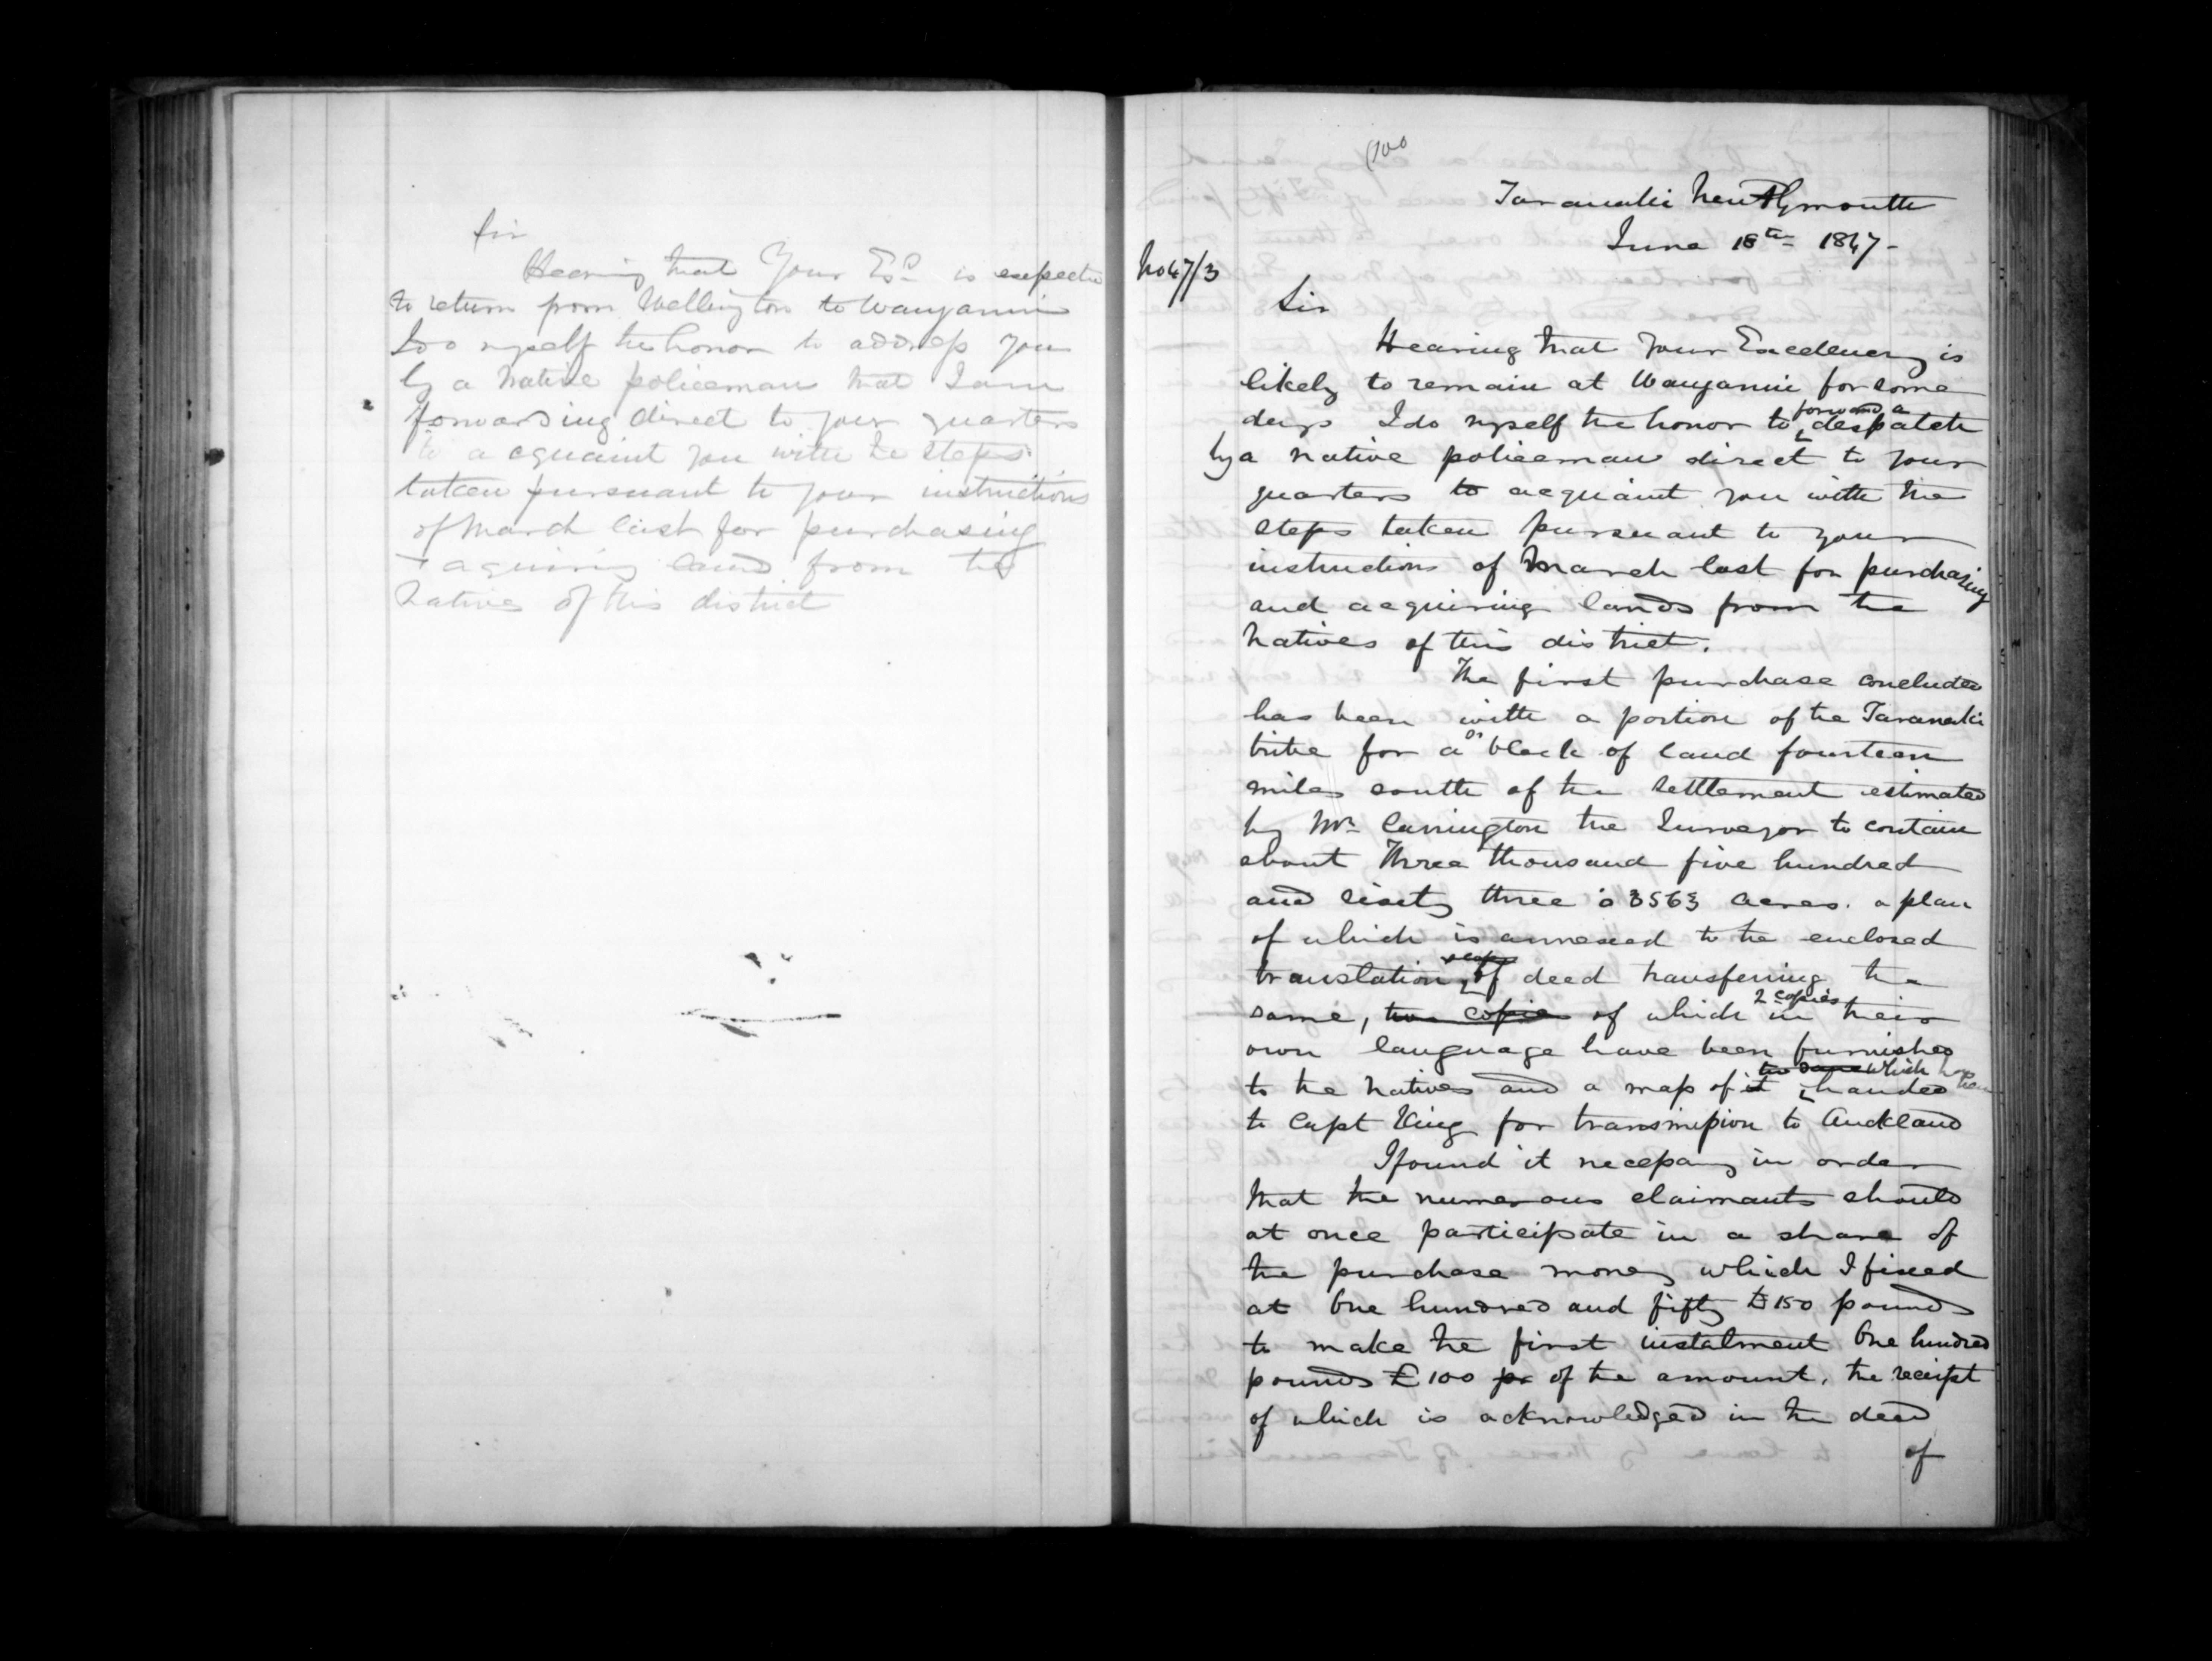 Sir
Hearing that Your Exc. is expected
to return from Wellington to Wanganui
I do myself the honor to address you
by a Native policeman that I am
forwarding direct to your quarters
to acquaint you with the steps
taken pursuant to your instructions
of March last for purchasing
+ aquiring land from the
Natives of this district
(100
Taranaki New Plymouth
June 18th 1847-
No 47/3
Sir
Hearing that Your Excellency is
likely to remain at Wanganui for some
days I do myself the honor to forward a despatch
by a native policeman direct to your
quarters to acquaint you with the
steps taken pursuant to your
instructions of March last for purchasing
and acquiring lands from the
Natives of this district.
The first purchase concluded
has been with a portion of the Taranaki
tribe for a block of land fourteen
miles south of the settlement estimated
by Mr Carrington the Surveyor to contain
about Three thousand five hundred
and sixty three 3563 acres. a plan
of which is annexed to the enclosed
translation of deed transferring the
same, two copies of which 2 copies in their
own language have been furnished
to the Natives and a map of it the same which has been handed
to Capt King for transmission to Auckland
I found it necessary in order
that the numerous claimants should
at once participate in a share of
the purchase money which I fixed
at One hundred and fifty £150 pounds
to make the first instalment One hundred
pounds £100 of the amount, the receipt
of which is acknowledged in the deed
of